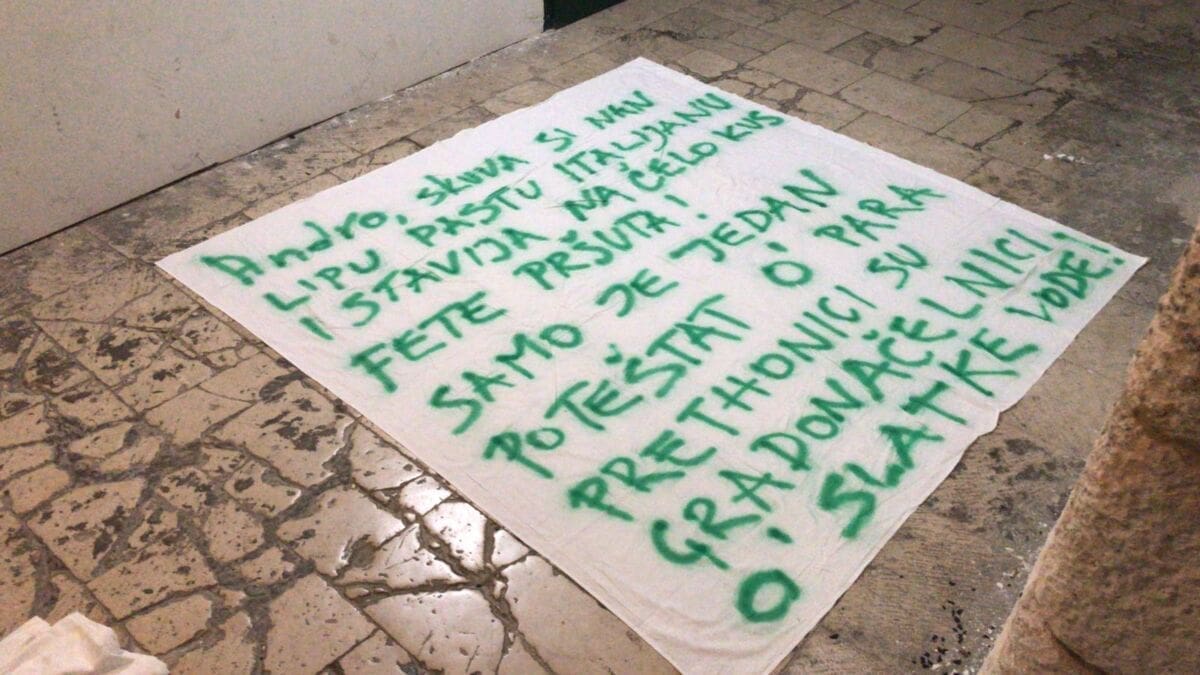 Andro, SKUVA SI NAN
LIPU PASTU ITALIJANU
I STAVIJA NA ČELO KUS
FETE PRŠUTA!
SAMO JE JEDAN
POTEŠTAT O' PARA
PRETHONICI SU
GRADONAČELNICI
O' SLATKE VODE!